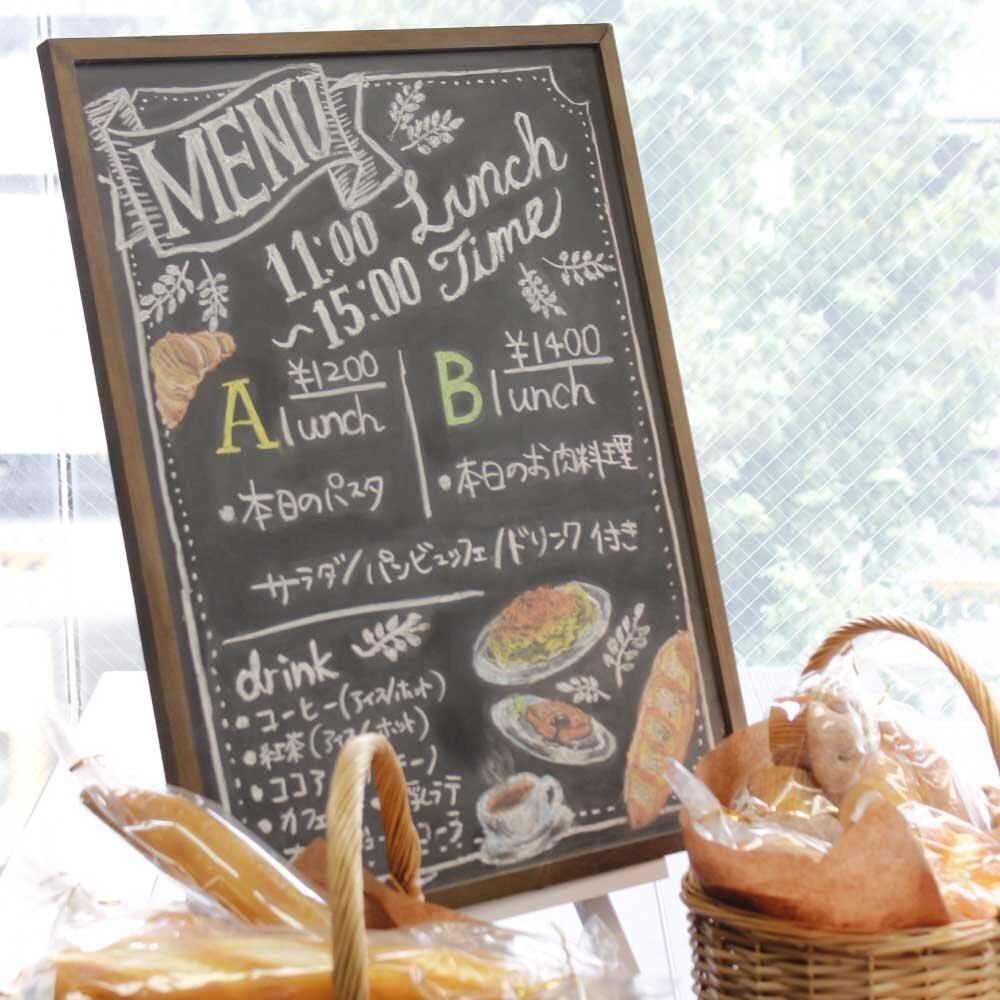 MENU
Lunch
Time
11:00
~15:00
A
¥1200
lunch
・本日のパスタ
B
¥1400
lunch
・本日のお肉料理
サラダ/パンビュッフェ/ドリンク付き
drink
・コーヒー(アイス/ホット)
・紅茶(アイス/ホット)
・ココア
カフェ
ラテ
コーラ